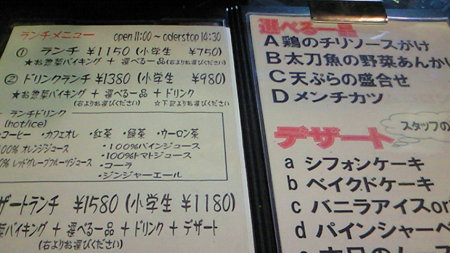 ランチメニュー open 11:00 ~ oderstop 14:30
① ランチ ¥1150 (小学生 ¥750)
★お惣菜バイキング + 選べる一品(右よりお選びください)
② ドリンクランチ ¥1380 (小学生 ¥980)
★お惣菜バイキング + 選べる一品 + ドリンク
(右よりお選びください) ☆下記よりお選びください
ランチドリンク
(hot/ice)
コーヒー ・カフェオレ ・紅茶 ・緑茶 ・ウーロン茶
00% オレンジジュース ・100%パインジュース
0% レッドグレープフルーツジュース ・100%トマトジュース
・コーラ
・ジンジャーエール
ザートランチ ¥1580 (小学生 ¥1180)
菜バイキング + 選べる一品 + ドリンク + デザート
(右よりお選びください)
選べる一品
A 鶏のチリソースかけ
B 太刀魚の野菜あんか
C 天ぷらの盛合せ
D メンチカツ
デザート
スタッフの
a シフォンケーキ
b ベイクドケーキ
c バニラアイスor
d パインシャーベ